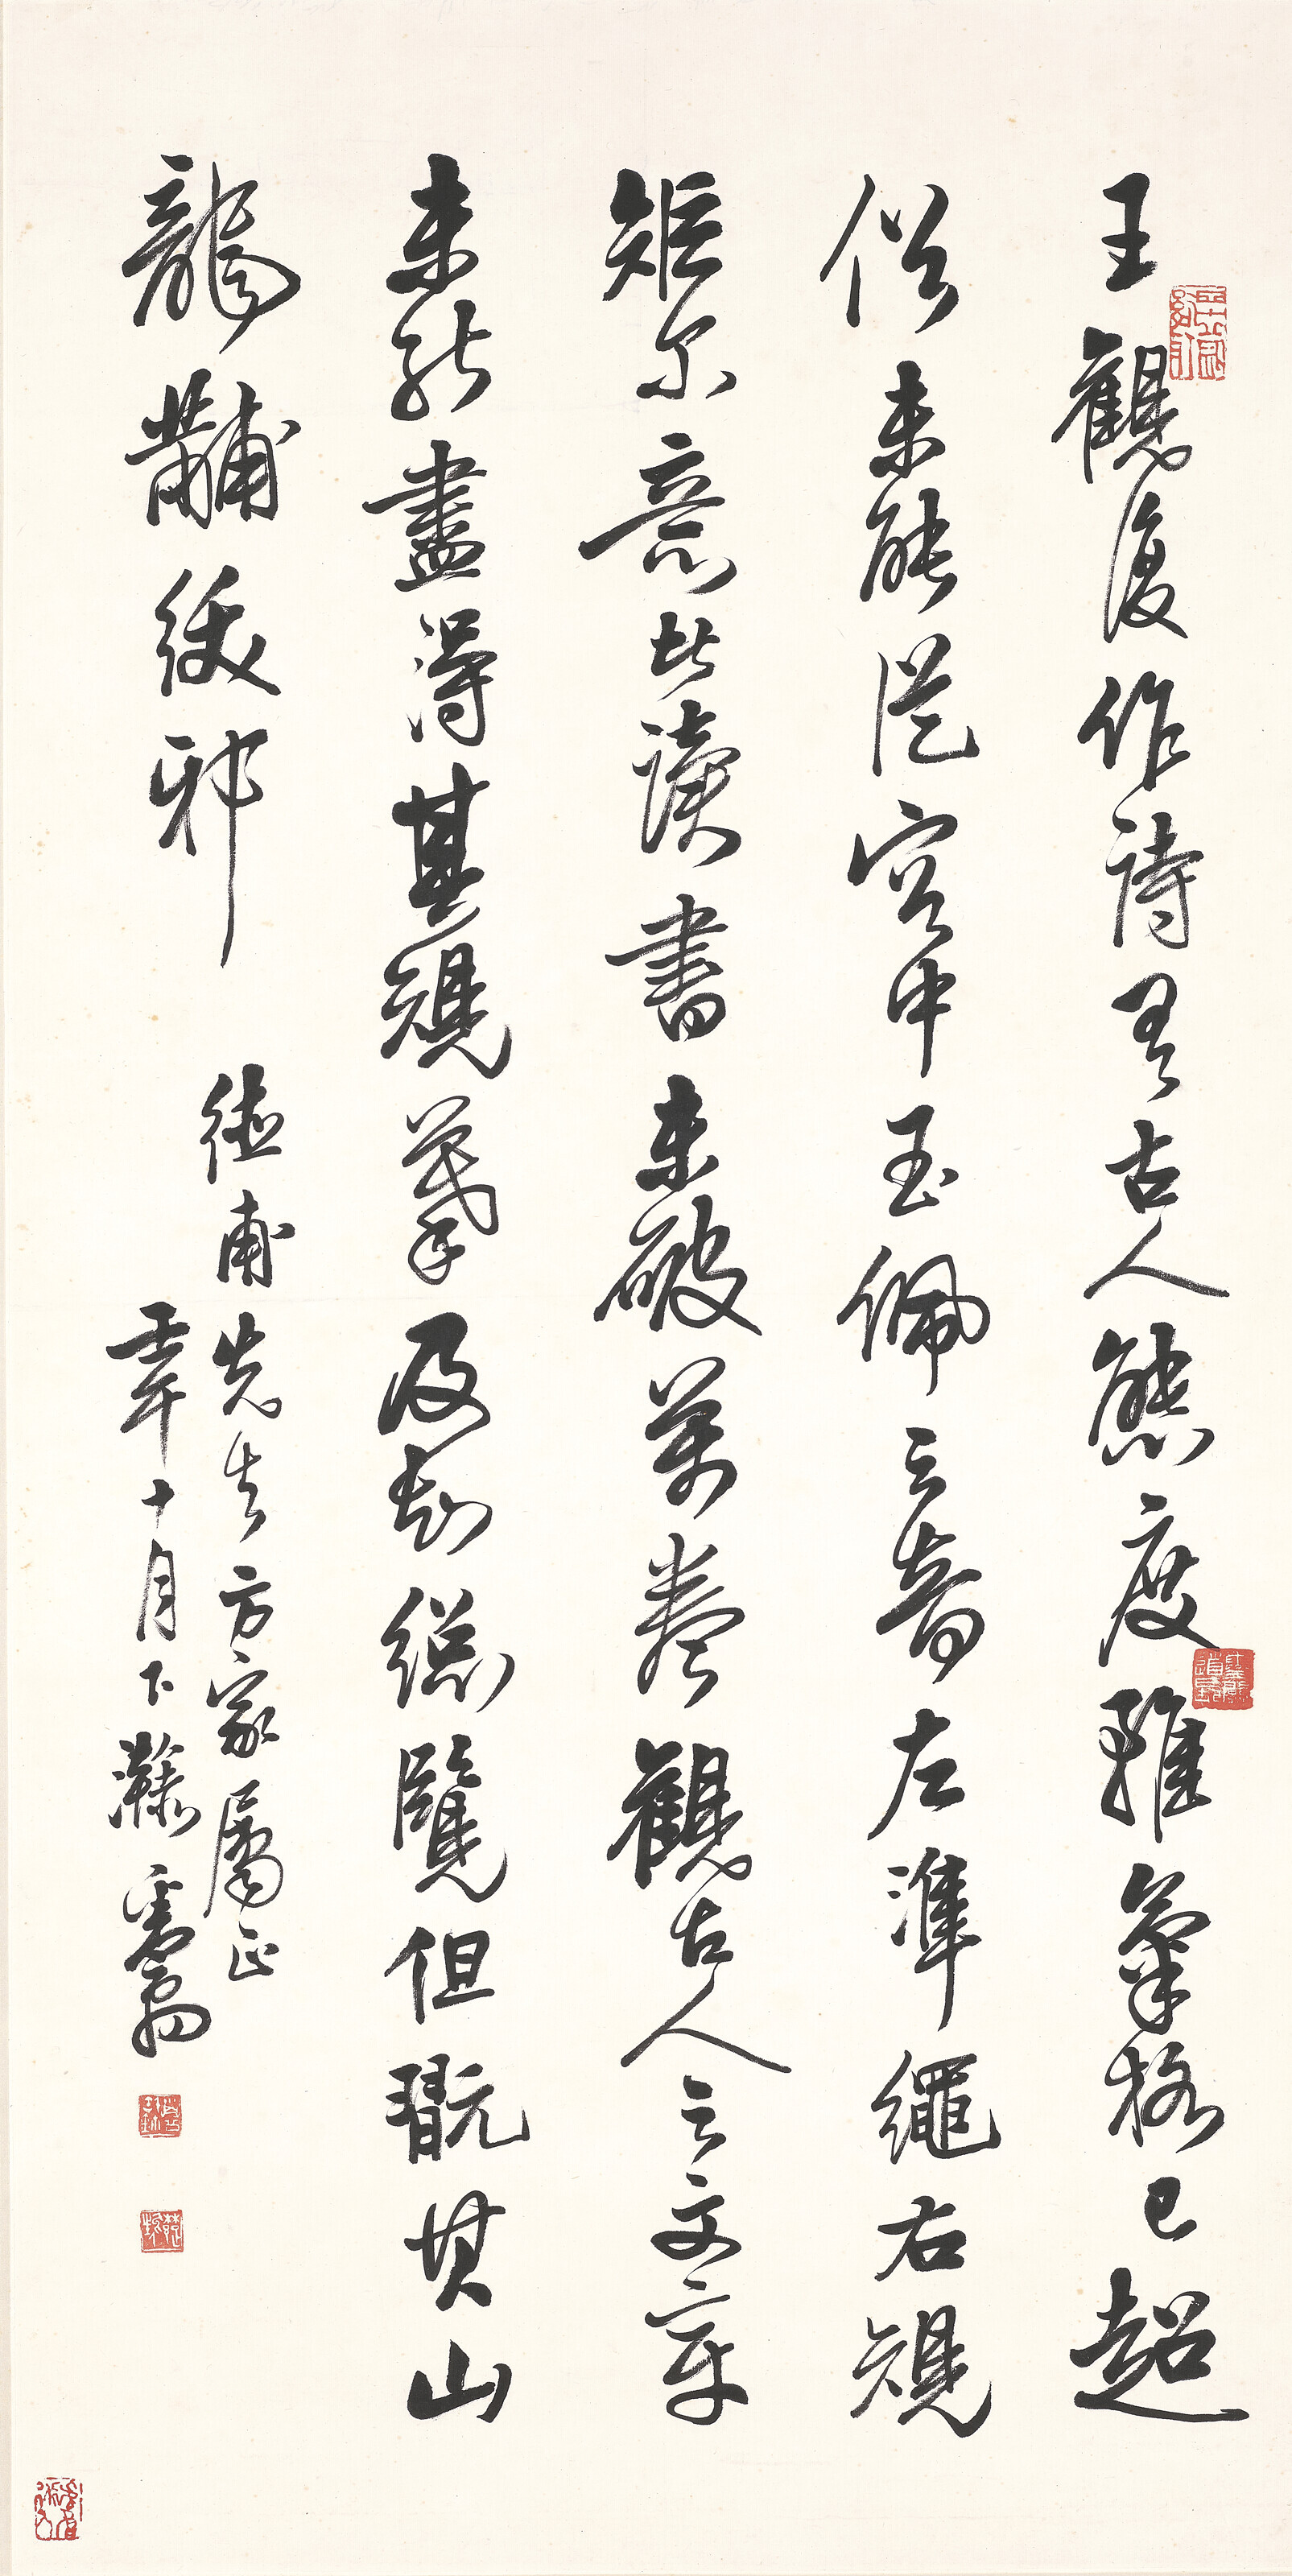 王觀復作詩有古人態度雖氣格已超
俗未能從容中玉佩之音左準繩右規
矩尔意讀書未破萬卷觀古人之文章
未能盡得其規摹及總覽但翫其山
龍黼紱邪
德甫先生方家屬正
壬午十月下澣